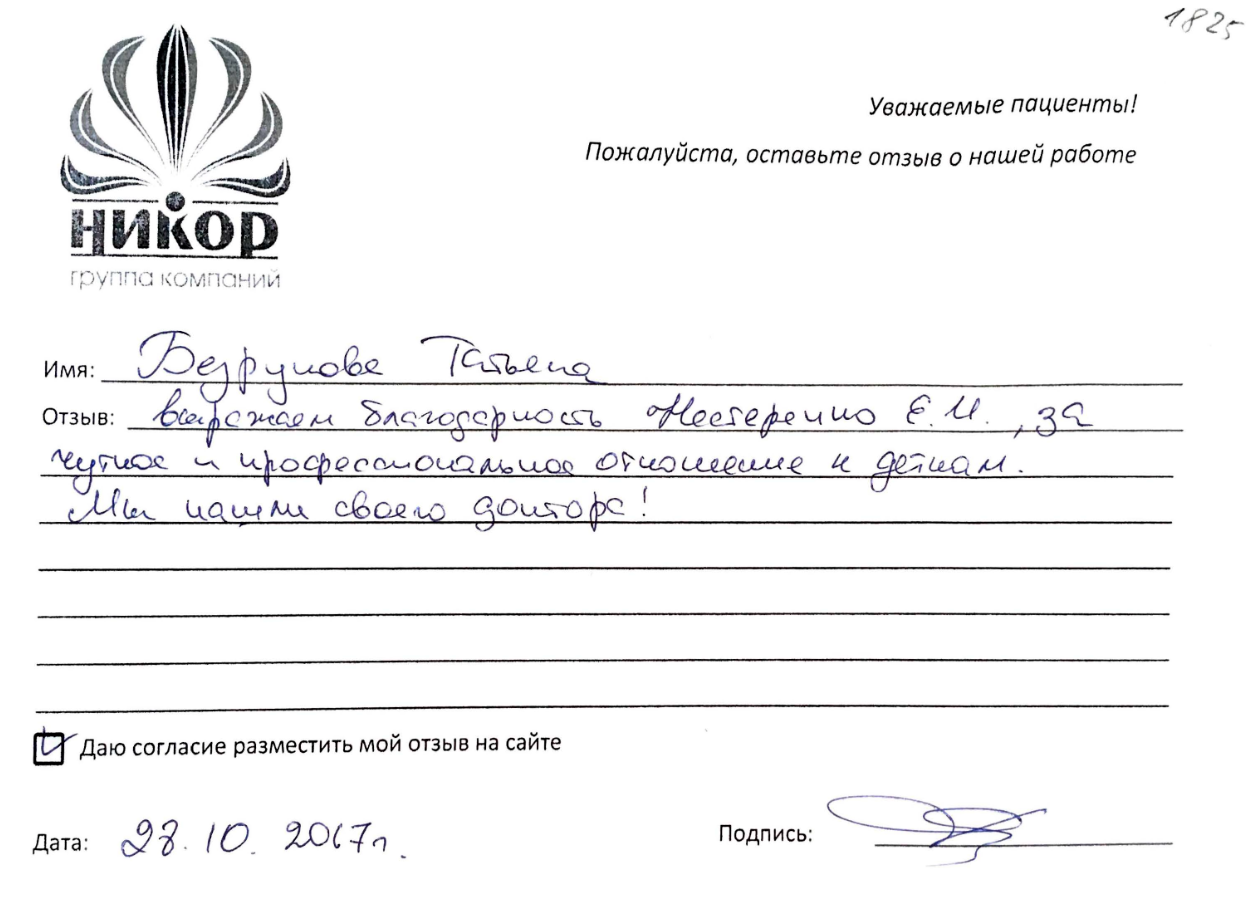 1825
НИКОР
группа компаний
Уважаемые пациенты!
Пожалуйста, оставьте отзыв о нашей работе
Имя: Безрукова Татьяна
Отзыв: выражаем благодарность Нестеренко Е.И., за
чуткое и профессиональное отношение к деткам.
Мы нашли своего доктора!
Даю согласие разместить мой отзыв на сайте
Дата: 28.10.2017г.
Подпись: